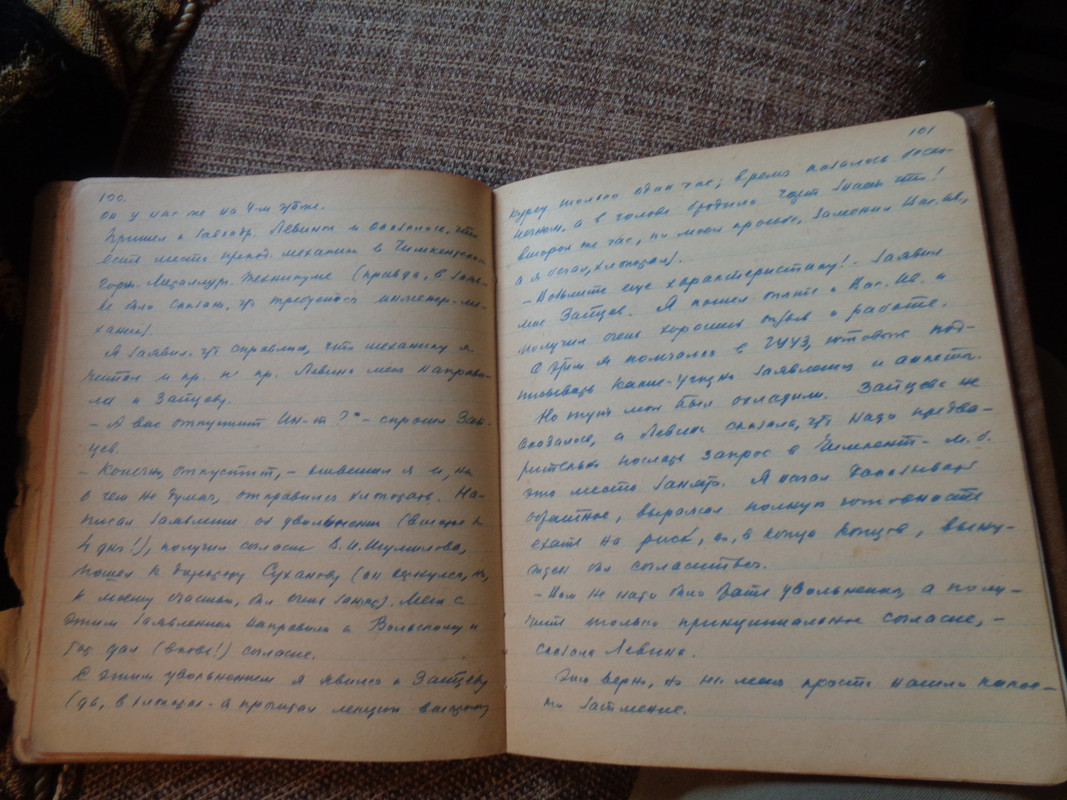 100.
он у нас же на 4-м курсе.
Пришел к завкадр. Левиной и оказалось, что
есть место препод. механики в Чимкентском
горн.-металлург. техникуме (правда, в заяв-
ке было сказано, что требуется инженер-ме-
ханик).
Я заявил, что справлюсь, что механику я
читал и пр. и пр. Левина меня направи-
ла к Зайцеву.
– А вас отпустит Ин-т? – спросил Зай-
цев.
– Конечно, отпустит, – выпалил я и, ни
о чем не думая, отправился хлопотать. На-
писал заявление об увольнении (
4 дн!), получил согласие В.И. Шумилова,
пошел к директору Суханову (он, но,
к моему счастью, был очень занят). Меня с
этим заявлением направили к Волоскому и
тот дал (вновь!) согласие.
С этим увольнением я явился к Зайцеву
(да, в хлопотах я прочитал лекции
101
курсу только один час; время казалось беско-
нечным, а в голове бродило черт знает что!
Второй же час, по моей просьбе, заменил Ив.,
а я бегал, хлопотал).
– Возьмите еще характеристику! – заявил
мне Зайцев. Я пошел опять к Ив. и
получил очень хороший отзыв о работе.
С этим я помчался в ГУУЗ, готовый под-
писывать какие-угодно заявления и анкеты.
Но тут мой был охладили. Зайцева не
оказалось, а Левина сказала, что надо предва-
рительно послать запрос в Чимкент – м.б.
это место занято. Я начал доказывать
обратное, выражал полную готовность
ехать на риск, но, в конце концов, вынуж-
ден был согласиться.
– Вам не надо было брать увольнение, а полу-
чить только принципиальное согласие, –
сказала Левина.
Это верно, но на меня просто нашло какое-
то затмение.